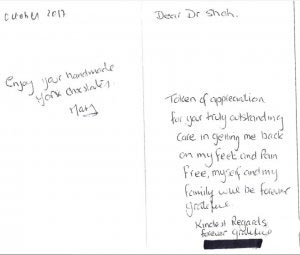 October 2017
Enjoy your handmade
chocolates.
Dear Dr Shah.
Token of appreciation
for your truly outstanding
care in getting me back
on my feet and Pain
Free, myself and my
family will be forever
grateful
Kindest Regards
forever grateful